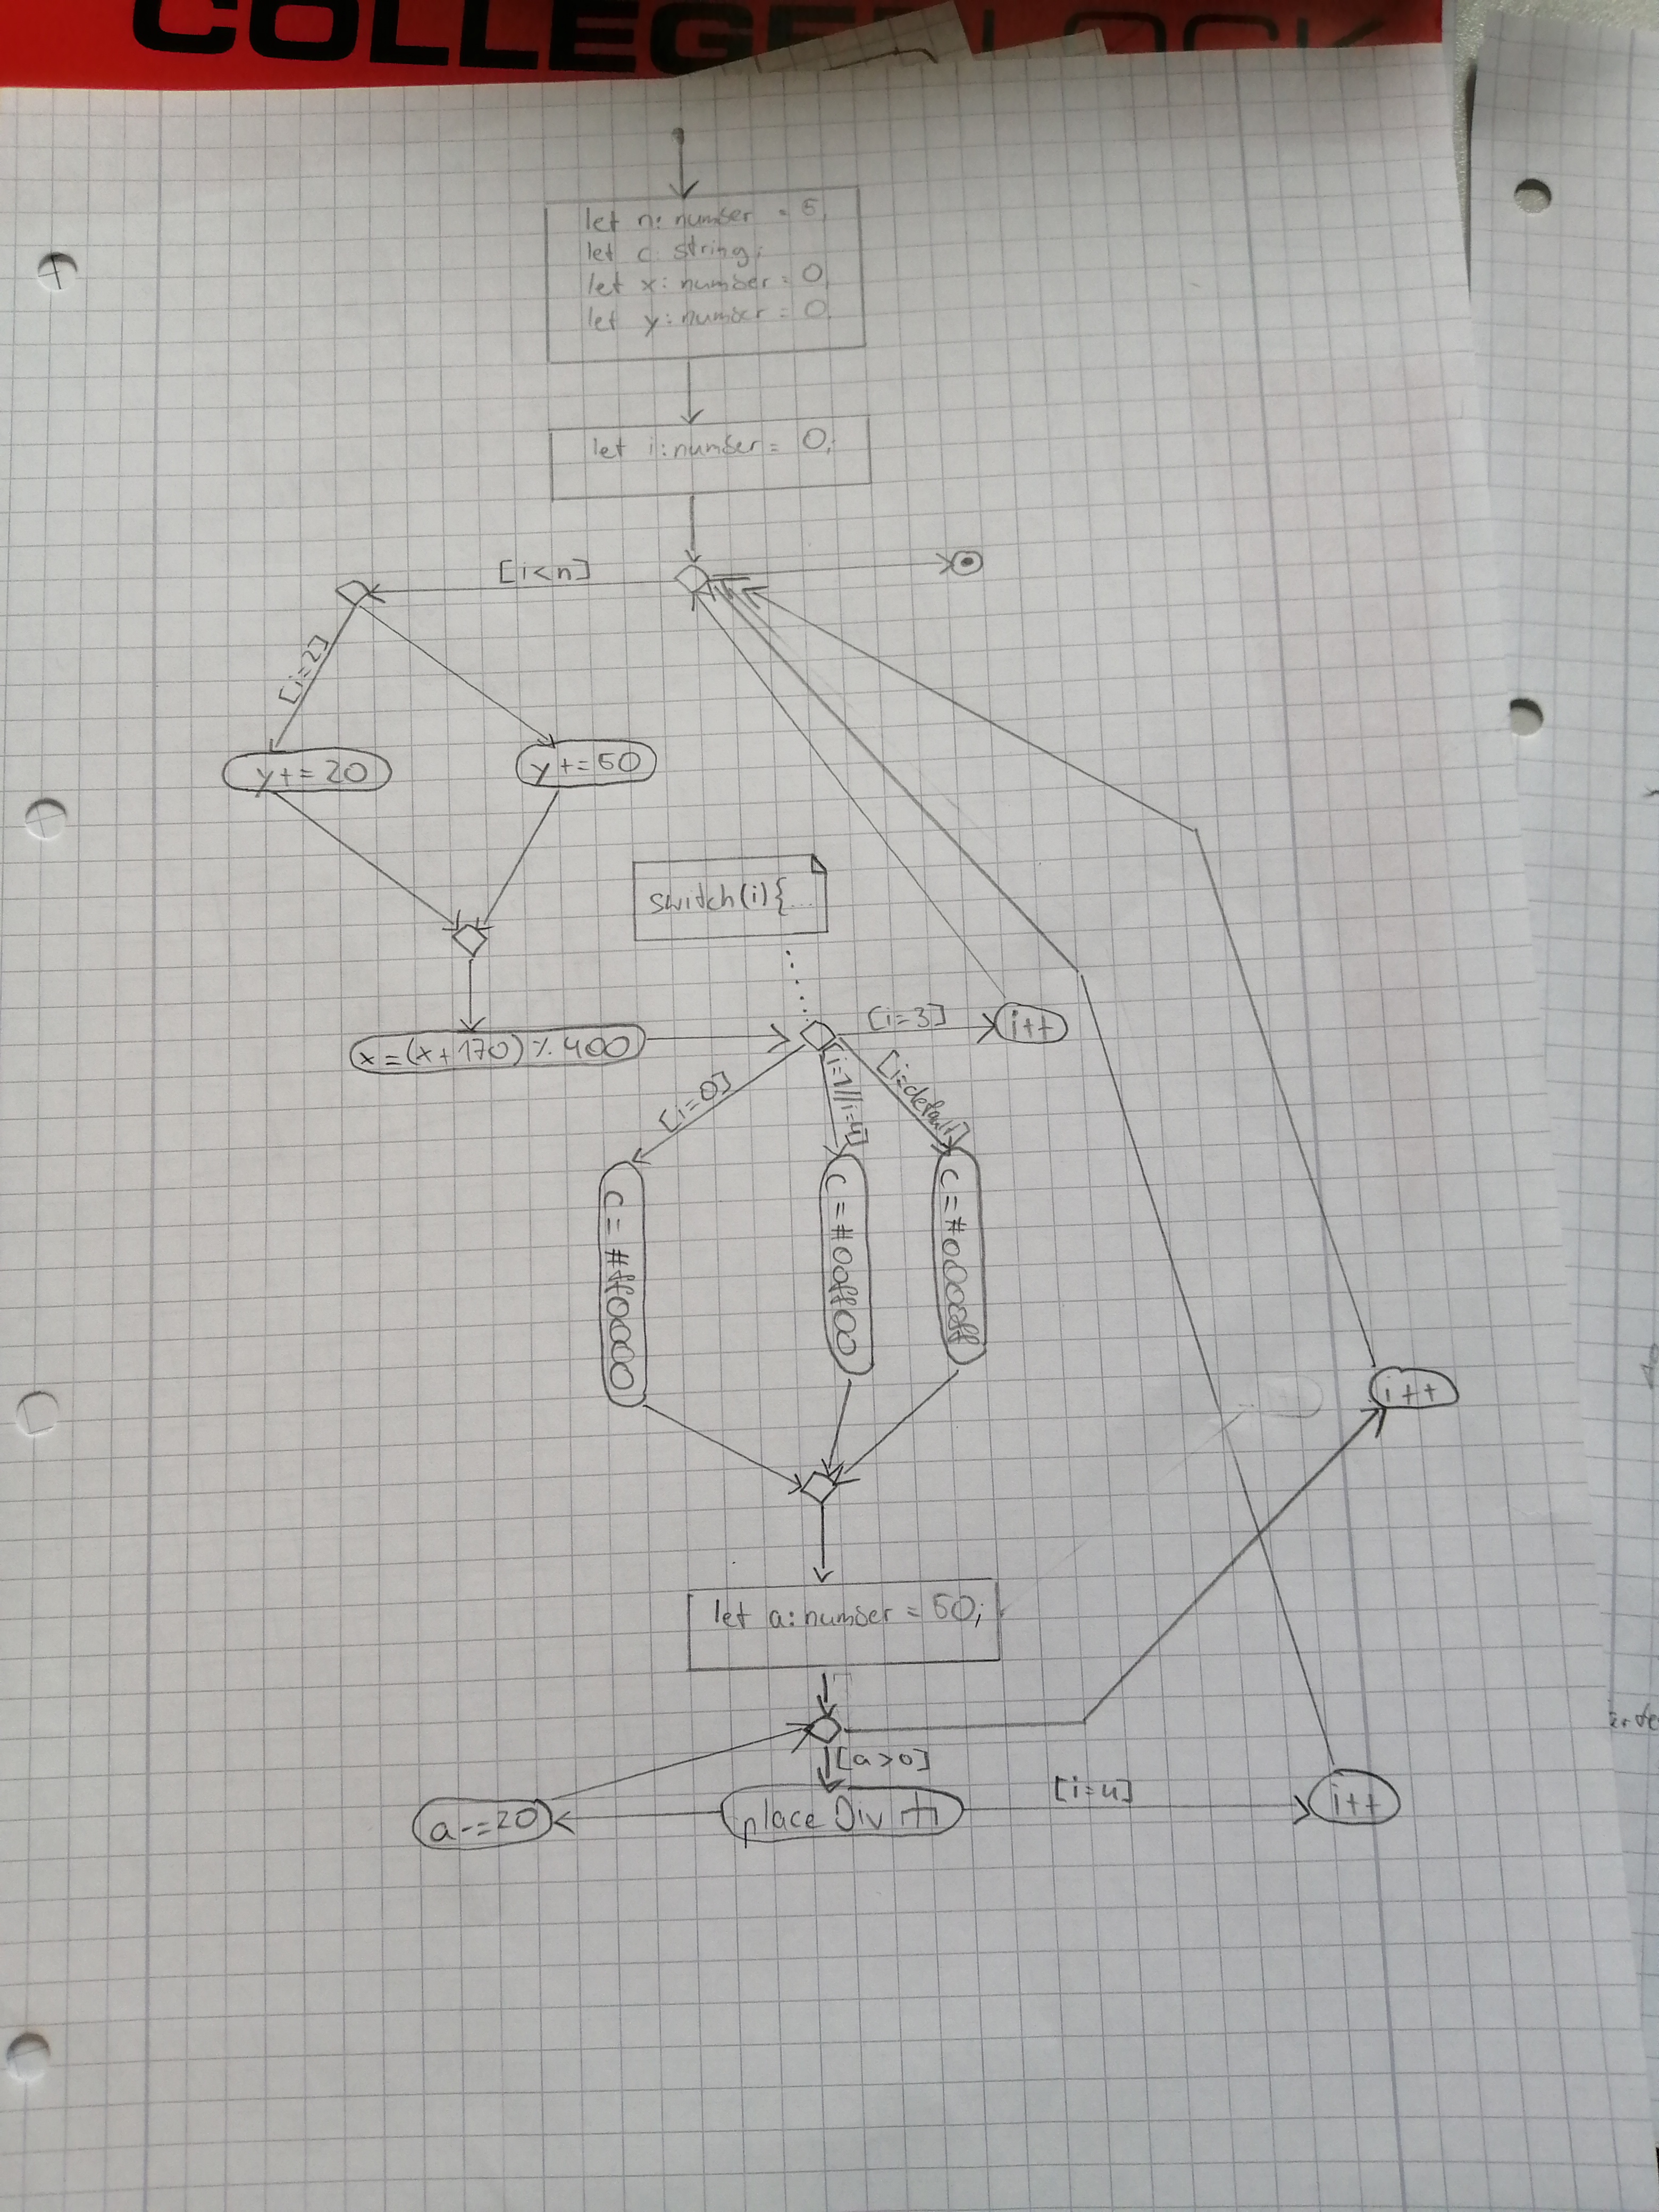 COLLEGEBLOCK
let n: number = 5;
let c: string;
let x: number = 0;
let y: number = 0;
let i: number = 0;
[i<n]
[i=2]
y+=20
y+=50
switch(i){...
x=(x+170)%400
[i=3]
i++
[i=0]
[i=1||i=4]
[i=default]
c=#ff0000
c=#00ff00
c=#0000ff
i++
let a: number = 50;
[a>0]
a-=20
place Div
[i=4]
i++